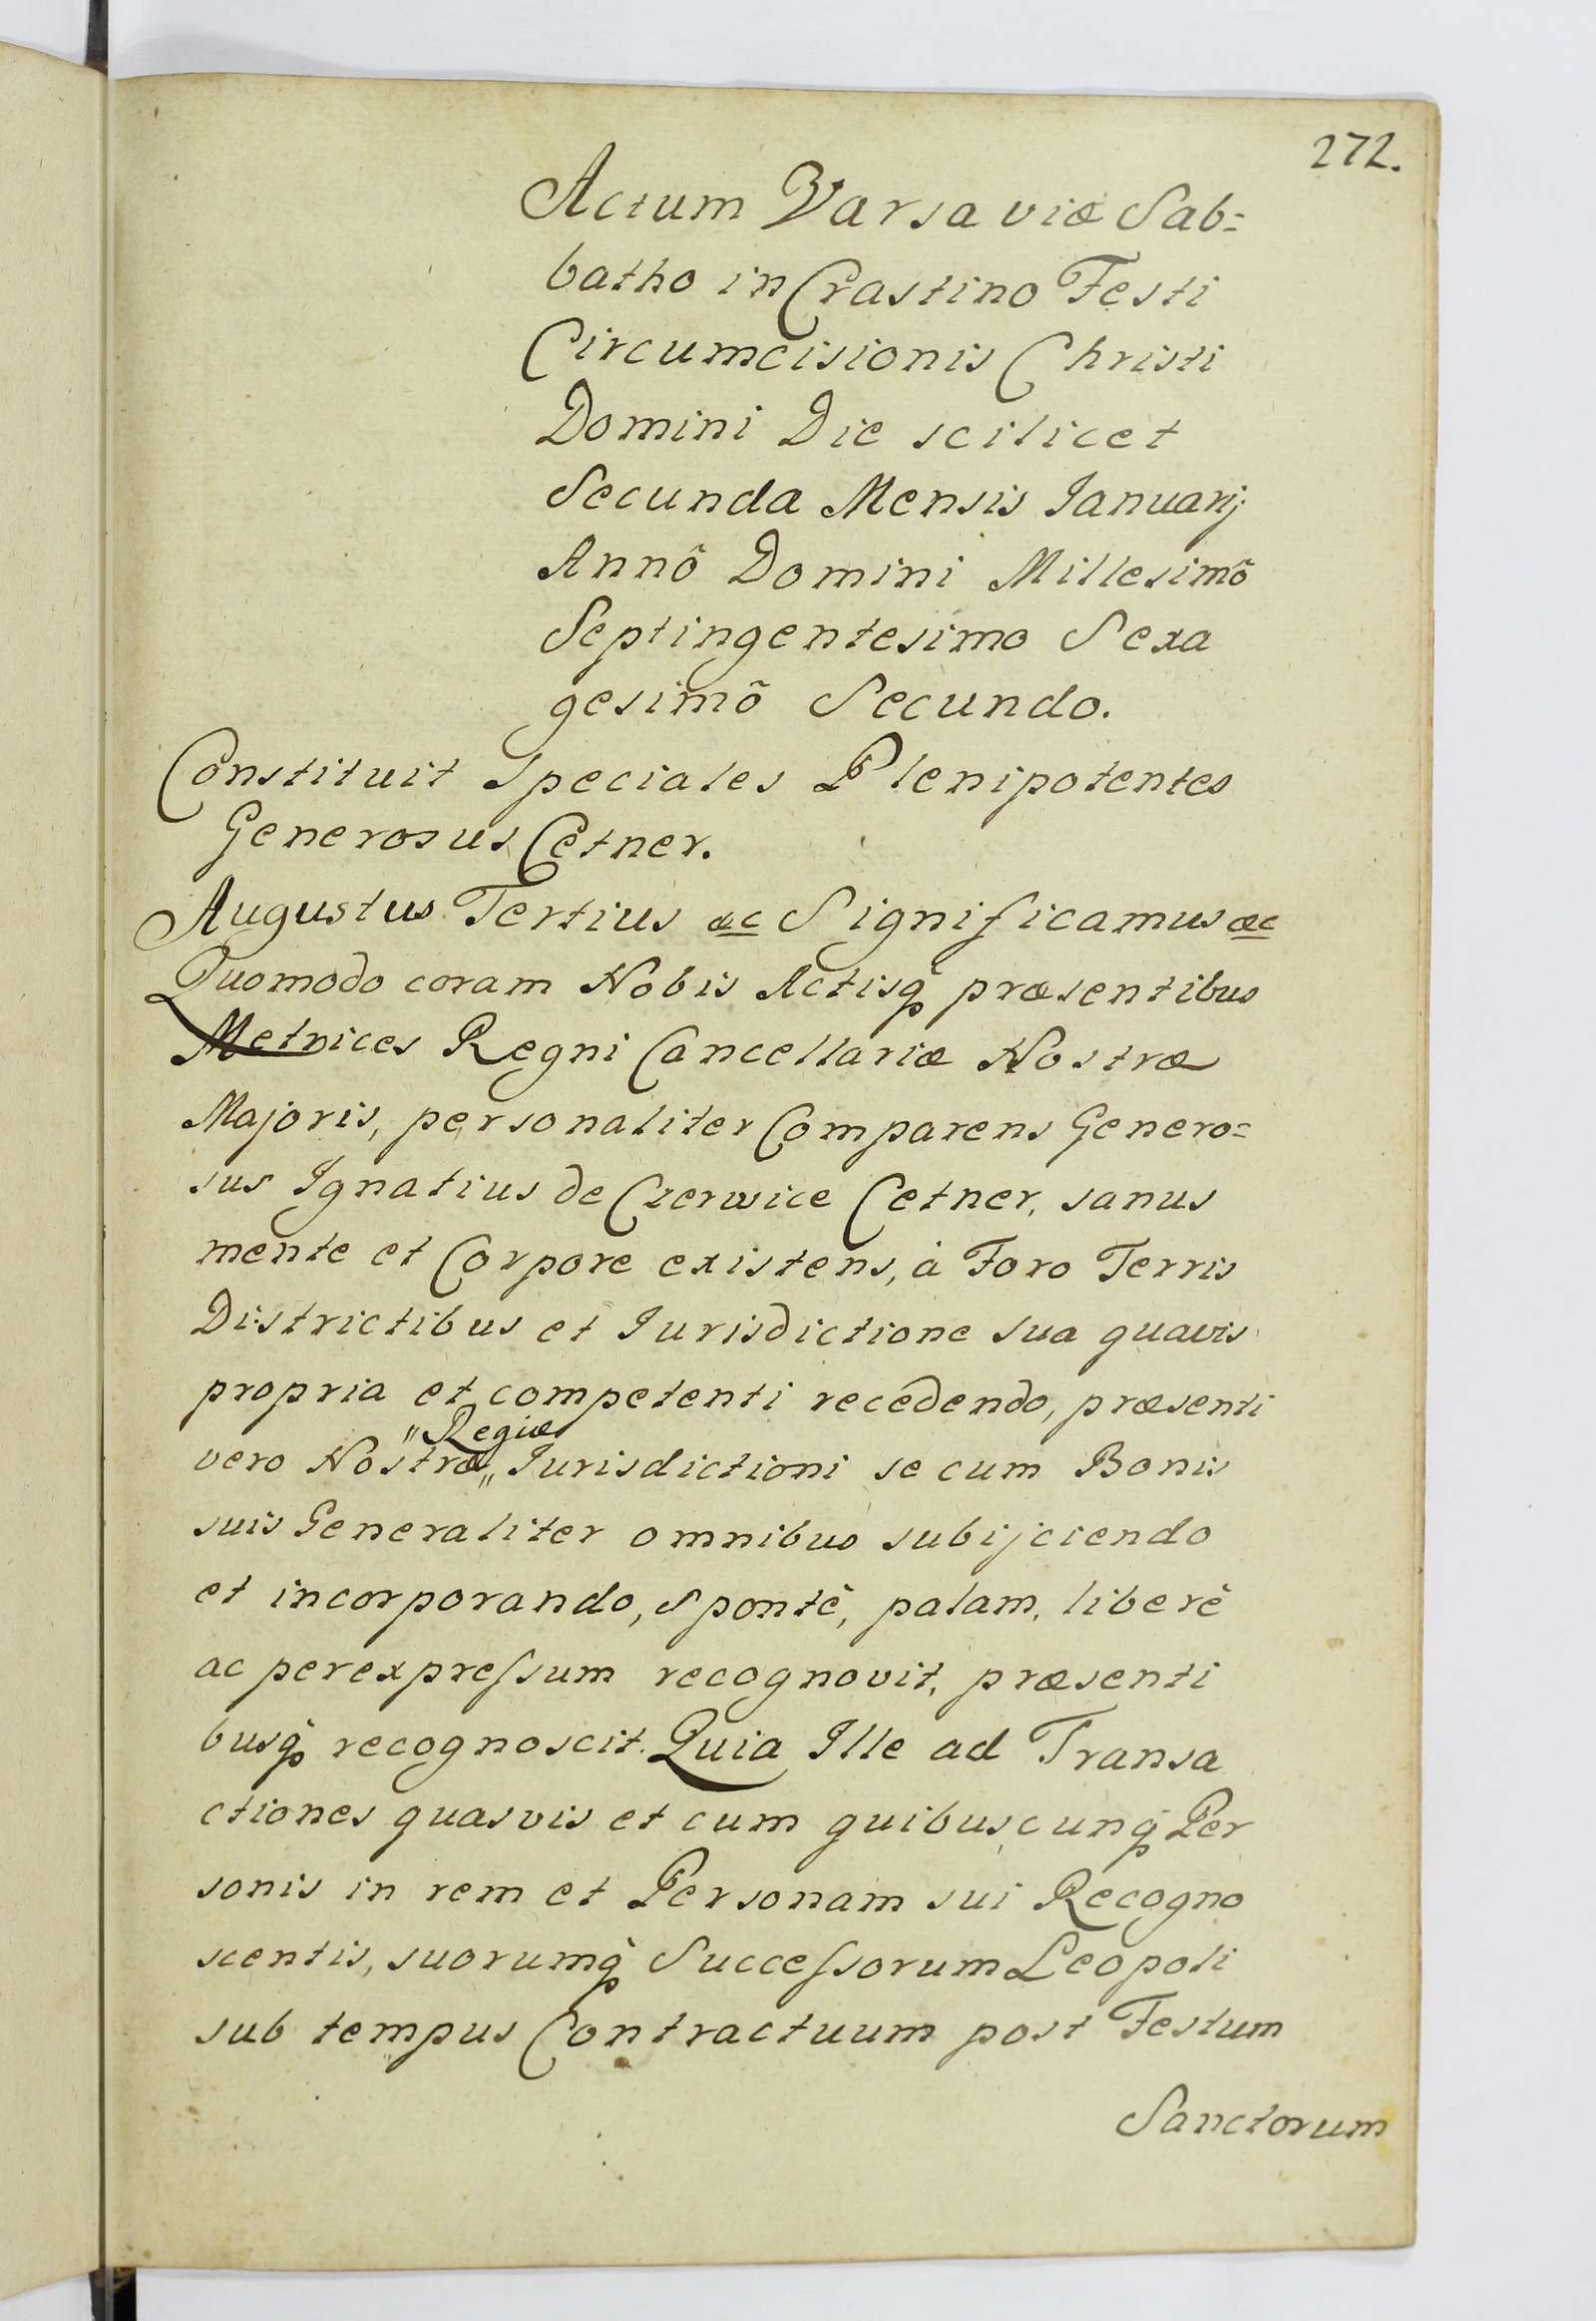 272.
Actum Varsaviæ Sab=
batho in Crastino Festi
Circumcisionis Christi
Domini Die scilicet
Secunda Mensis Ianuarij
Annô Domini Millesimô
Septingentesimo Sexa
gesimô Secundo.
Constituit Speciales Plenipotentes
Generosus Cetner.
Augustus Tertius &c Significamus &c
Quomodo coram Nobis Actisq̀ præsentibus
Metrices Regni Cancellariæ Nostræ
Majoris, personaliter Comparens Genero=
sus Ignatius de Czerwice Cetner, sanus
mente et Corpore existens, à Foro Terris
Districtibus et Iurisdictione sua quavis
propria et competenti recedendo, præsenti
"Regiæ
vero Nostræ„ Iurisdictioni se cum Bonis
suis Generaliter omnibus subijciendo
et incorporando, Spontè, palam, liberè
ac perexpreſsum recognovit, præsenti
busq̀ recognoscit. Quia Ille ad Transa
ctiones quasvis et cum quibuscunq̀ Per
sonis in rem et Personam sui Recogno
scentis, suorumq̀ Succeſsorum Leopoli
sub tempus Contractuum post Festum
Sanctorum